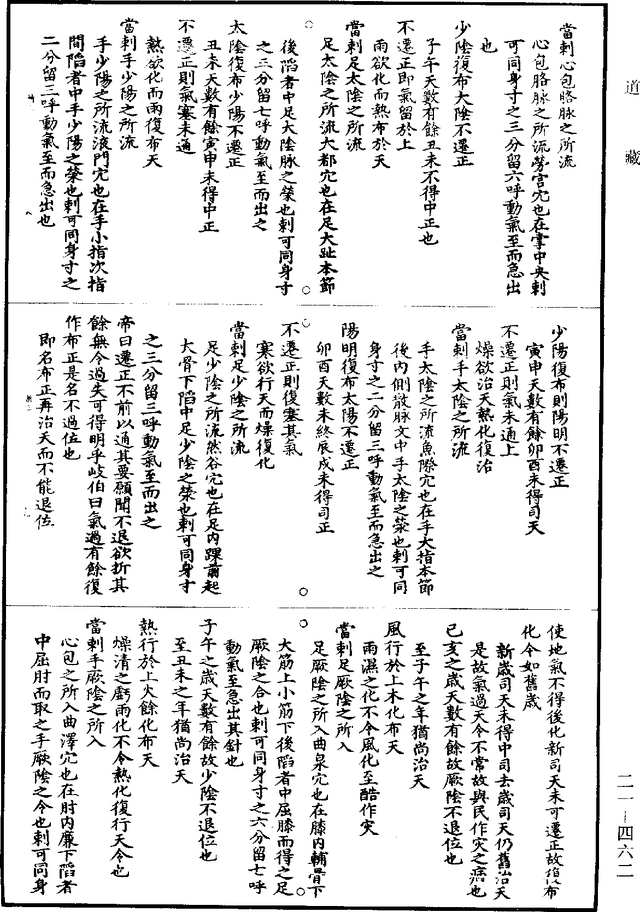 道藏
當刺心包胳脉之所流
心包胳脉之所流勞宮穴也在掌中央刺
可同身寸之三分留六呼動氣至而急出
也
少陰復布太陰不遷正
子午天數有餘丑未不得中正也
不遷正即氣留於上
雨欲化而熱布於天
當刺足太陰之所流
足太陰之所流大都穴也在足大趾本節
後陷者中足太陰脉之滎也刺可同身寸
之三分留七呼動氣至而急出之
太陰復布少陽不遷正
丑未天數有餘寅申未得中正
不遷正則氣塞未通
熱欲化而雨復布天
當刺手少陽之所流
手少陽之所流液門穴也在手小指次指
間陷者中手少陽之滎也刺可同身寸之
二分留三呼動氣至而急出也
少陽復布則陽明不遷正
寅申天數有餘卯酉未得司天
不遷正則氣未通上
燥欲治天熱化復治
當刺手太陰之所流
手太陰之所流魚際穴也在手大指本節
後內側散脉文中手太陰之滎也刺可同
身寸之二分留三呼動氣至而急出之
陽明復布太陽不遷正
卯酉天數未終辰戌未得司正
不遷正則復塞其氣
寒欲行天而燥復化
當刺足少陰之所流
足少陰之所流然谷穴也在足內踝前起
大骨下陷中足少陰之滎也刺可同身寸
之三分留三呼動氣至而出之
帝曰遷正不前以通其要願聞不退欲折其
餘無令過失可得明乎岐伯曰氣過有餘復
作布正是名不過位也
即名布正再治天而不能退位
使地氣不得後化新司天未可遷正故復布
化令如舊歲
新歲司天未得中司去歲司天仍舊治天
是故氣過天令不常故與民作災之病也
巳亥之歲天數有餘故厥陰不退位也
至子午之年猶尚治天
風行於上木化布天
雨濕之化不令風化至酷作灾
當刺足厥陰之所入
足厥陰之所入曲泉穴也在膝內輔骨下
大筋上小筋下後陷者中屈膝而得之足
厥陰之合也刺可同身寸之六分留七呼
動氣至急出其針也
子午之歲天數有餘故少陰不退位也
至丑未之年猶尚治天
熱行於上火餘化布天
燥清之虧雨化不令熱化復行天令也
當刺手厥陰之所入
心包之所入曲澤穴也在肘內廉下陷者
中屈肘而取之手厥陰之令也刺可同身
二一－四六二